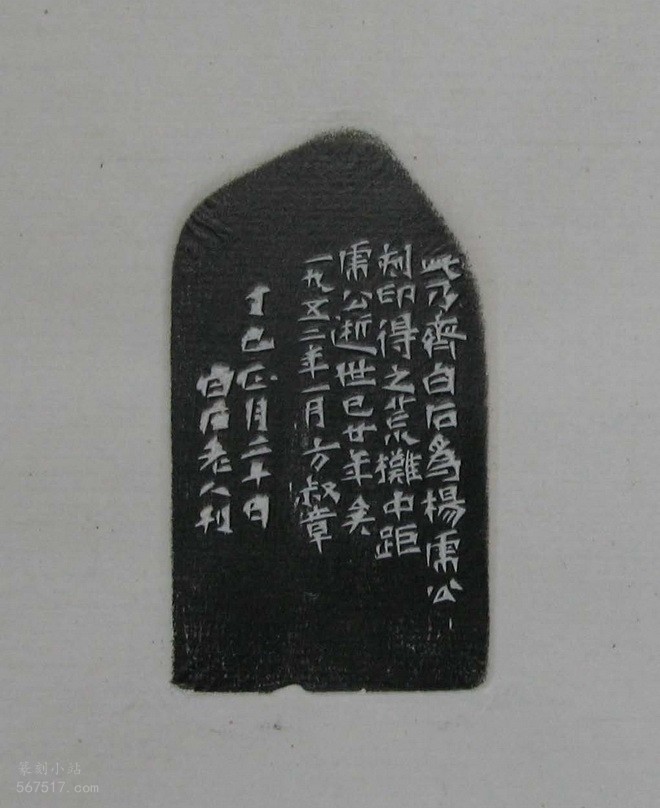 此乃齊白石為楊虎公
刻印得之荒攤中距
虎公逝世已廿年矣
一九五二年一月方叔章
丁巳正月二十日
白石老人刊
篆刻小站
567517.com